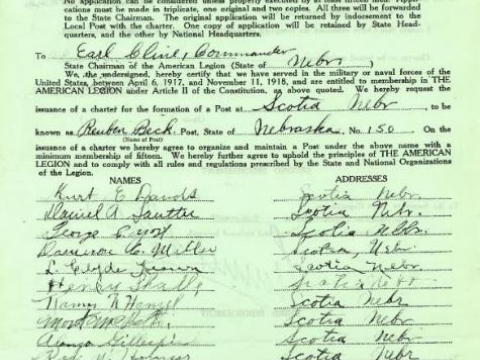 No application can be considered unless properly executed by at least fifteen men. Appli-
cations must be made in triplicate, one original and two copies. All three will be forwarded
to the State Chairman. The original application will be returned by indorsement to the
Local Post with the charter. One copy of application will be retained by State Head-
quarters, and the other by National Headquarters.
To Earl Cline, Commander
State Chairman of the American Legion (State of Nebr)
We, the undersigned, hereby certify that we have served in the military or naval forces of the
United States between April 6, 1917, and November 11, 1918, and are entitled to membership in THE
AMERICAN LEGION under Article II of the Constitution, as above quoted. We hereby request the
issuance of a charter for the formation of a Post at Scotia Nebr, to be
known as Reuben Beck Post, State of Nebraska No. 150 On the
(Name of Post)
issuance of a charter we hereby agree to organize and maintain a Post under the above name with a
minimum membership of fifteen. We hereby further agree to uphold the principles of THE AMERICAN
LEGION and to comply with all rules and regulations prescribed by the State and National Organizations
of the Legion.
NAMES ADDRESSES
Kurt E Scotia Nebr.
Daniel A Sautter Scotia Nebr.
George C. Scotia Nebr.
C. Miller Scotia, Nebr.
L. Clyde Scotia Nebr.
Henry Scotia Nebr
Scotia Nebr
Scotia Nebr
Alonzo Gillespie Scotia Nebr.
Scotia Nebr